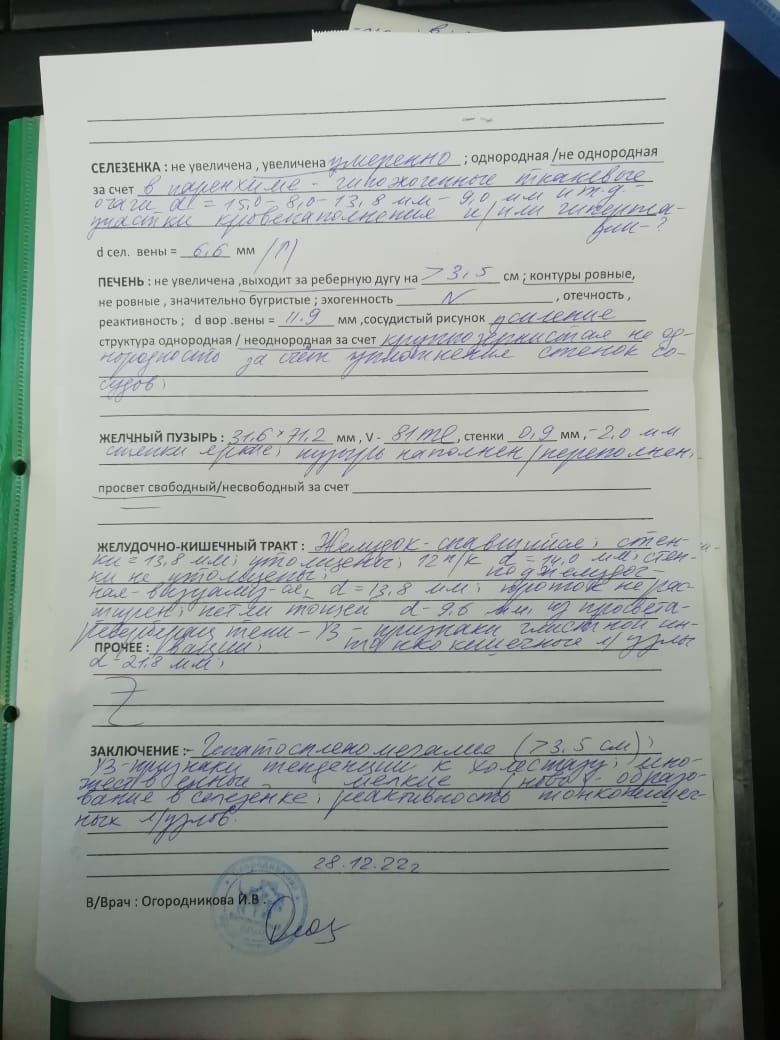 СЕЛЕЗЕНКА : не увеличена , увеличена умеренно ; однородная /не однородная
за счет в паренхиме - гипоэхогенные тканевые
очаги d = 15,0 - 8,0 - 13,8 мм - 9,0 мм и т.д. -
участки кровенаполнения и/или гиперпла-
зии - ?
d сел. вены = 6,6 мм /↑/
ПЕЧЕНЬ : не увеличена ,выходит за реберную дугу на >3,5 см ; контуры ровные,
не ровные , значительно бугристые ; эхогенность N , отечность ,
реактивность ; d вор .вены = 11.9 мм ,сосудистый рисунок усиление
структура однородная / неоднородная за счет крупнозернистая не од-
нородность за счёт уплотнения стенок со-
судов;
ЖЕЛЧНЫЙ ПУЗЫРЬ : 31,6 × 71,2 мм , V - 81 ml , стенки 0,9 мм , - 2,0 мм
стенки яркие; пузырь наполнен/переполнен;
просвет свободный/несвободный за счет
ЖЕЛУДОЧНО-КИШЕЧНЫЙ ТРАКТ : Желудок - спавшийся; стен-
ки = 13,8 мм; утолщены; 12 п/к d = 14,0 мм; стен-
ки не утолщены; поджелудоч
ная - d = 13,8 мм; проток не рас-
ширен; петли тонкой d - 9,6 мм; из просвета -
тени - УЗ - признаки глистной ин-
ПРОЧЕЕ : вазии; тонкокишечные л/узлы
d - 21,8 мм;
ЗАКЛЮЧЕНИЕ :- Гепатоспленомегалия (>3,5 см);
УЗ-признаки тенденции к холестазу; мно-
жественные мелкие /ново/ - образо-
вание в селезенке; реактивность тонкокишеч-
ных л/узлов.
28.12.22г
В/Врач : Огородникова И.В .